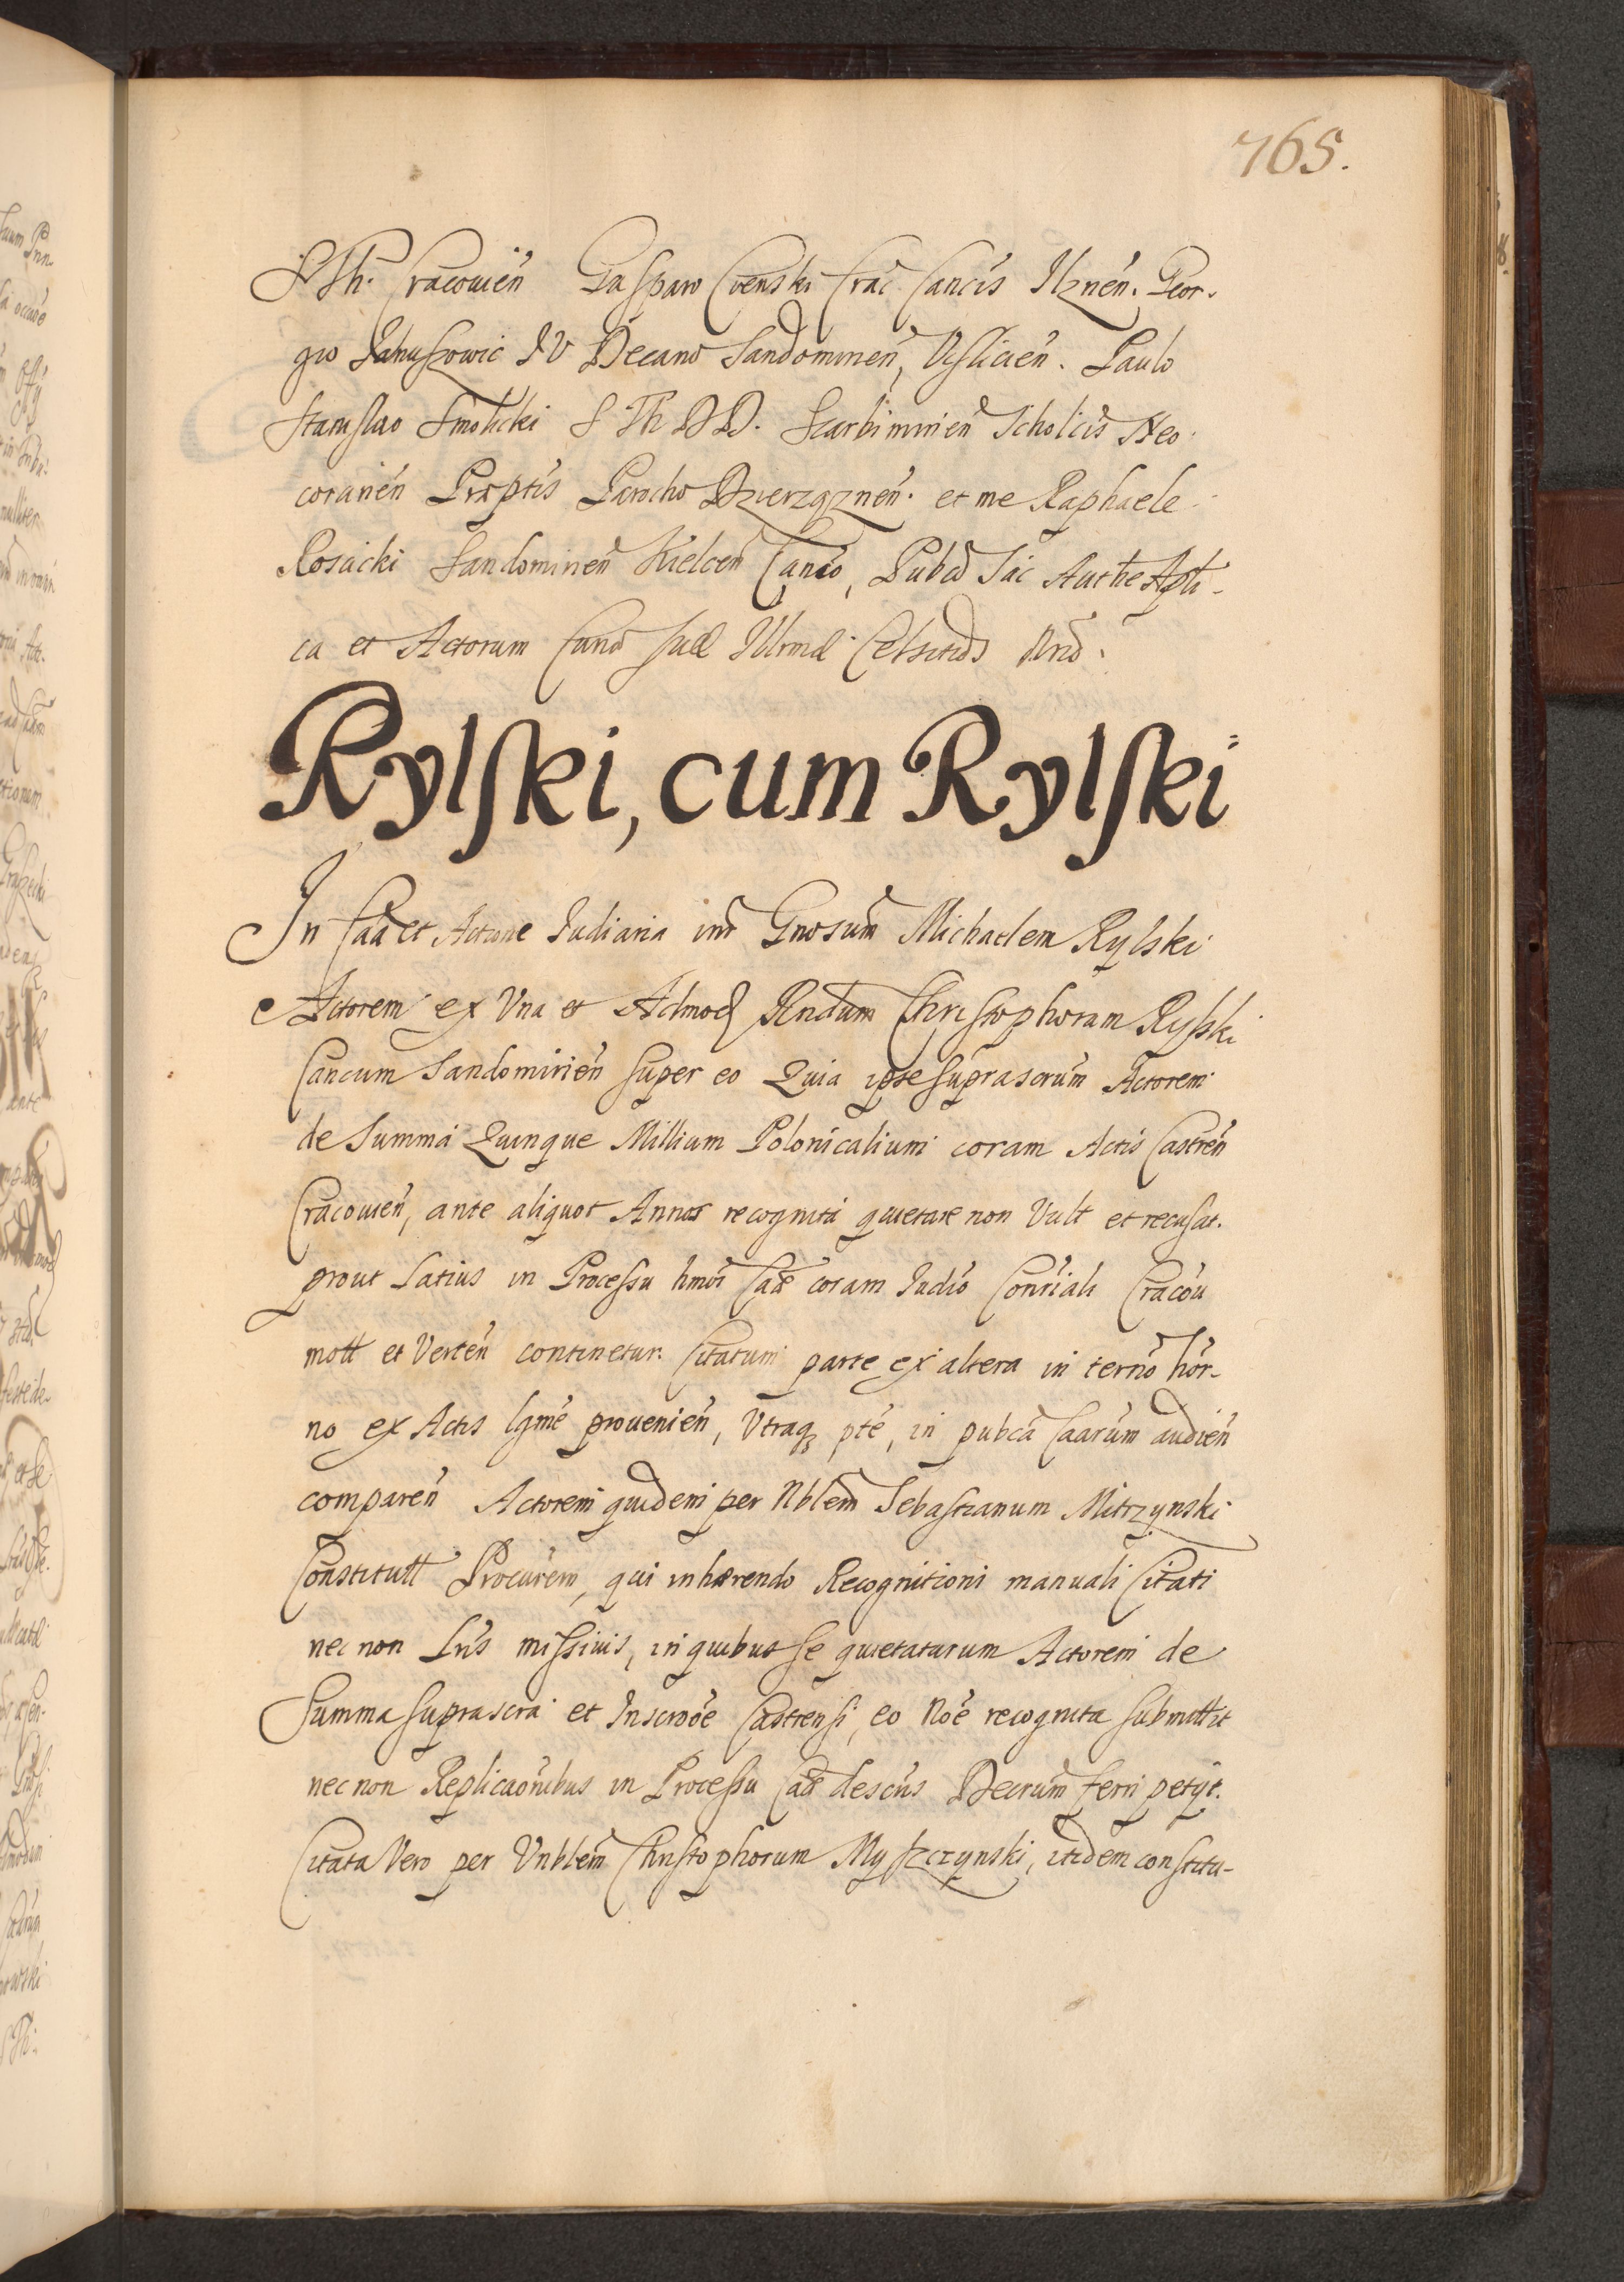 765.
S Th. Cracouień Gasparo Cvenski Crac Cancis Ilzneń. Geor.
gio Januszowic IV Decano Sandomirień, Vislicień. Paulo
Stanislao Smolicki S Th DD. Scarbimirień Scholcis Neo
coranień Præptis Parocho Dzierzązneń. et me Raphaele
Rosicki Sandomirień Kielceń Canco, Pubco Sac Authe Apli-
ca et Actorum Canō suæ Illrmæ Celsitudis Nrio.
Rylſki, cum Rylſki
In Caa et Actione Iudiaria inr Gnosum Michaelem Rylski
Actorem ex Vna et Admod Rndum Chriſtophorum Rylski
Cancum Sandomirień super eo Quia ipse suprascrum Actorem
de Summa Quinque Millium Polonicalium coram Actis Castreń
Cracouień, ante aliquot Annos recognita quietare non Vult et recusat.
prout Latius in Processu hmoi Caæ coram Iudio Consriali Cracou
mott et Verteń continetur. Citatum parte ex altera in termō hōr-
no ex Actis lgme prouenień, Vtraq pte, in pubca Caarum audień
compareń Actorem quidem per Nblem Sebastianum Mitrzynski
Constitutt Procurem, qui inhærendo Recognitioni manuali Citati
nec non Lris missiuis, in quibus se quietaturum Actorem de
Summa suprascra et Inscrōōe Castrensi, eo Noe recognita submittit
nec non Replicaōnibus in Processu Caæ descris Decrum ferri petijt.
Citata Vero per Vnblem Christophorum Myszczynski, itidem constitu-